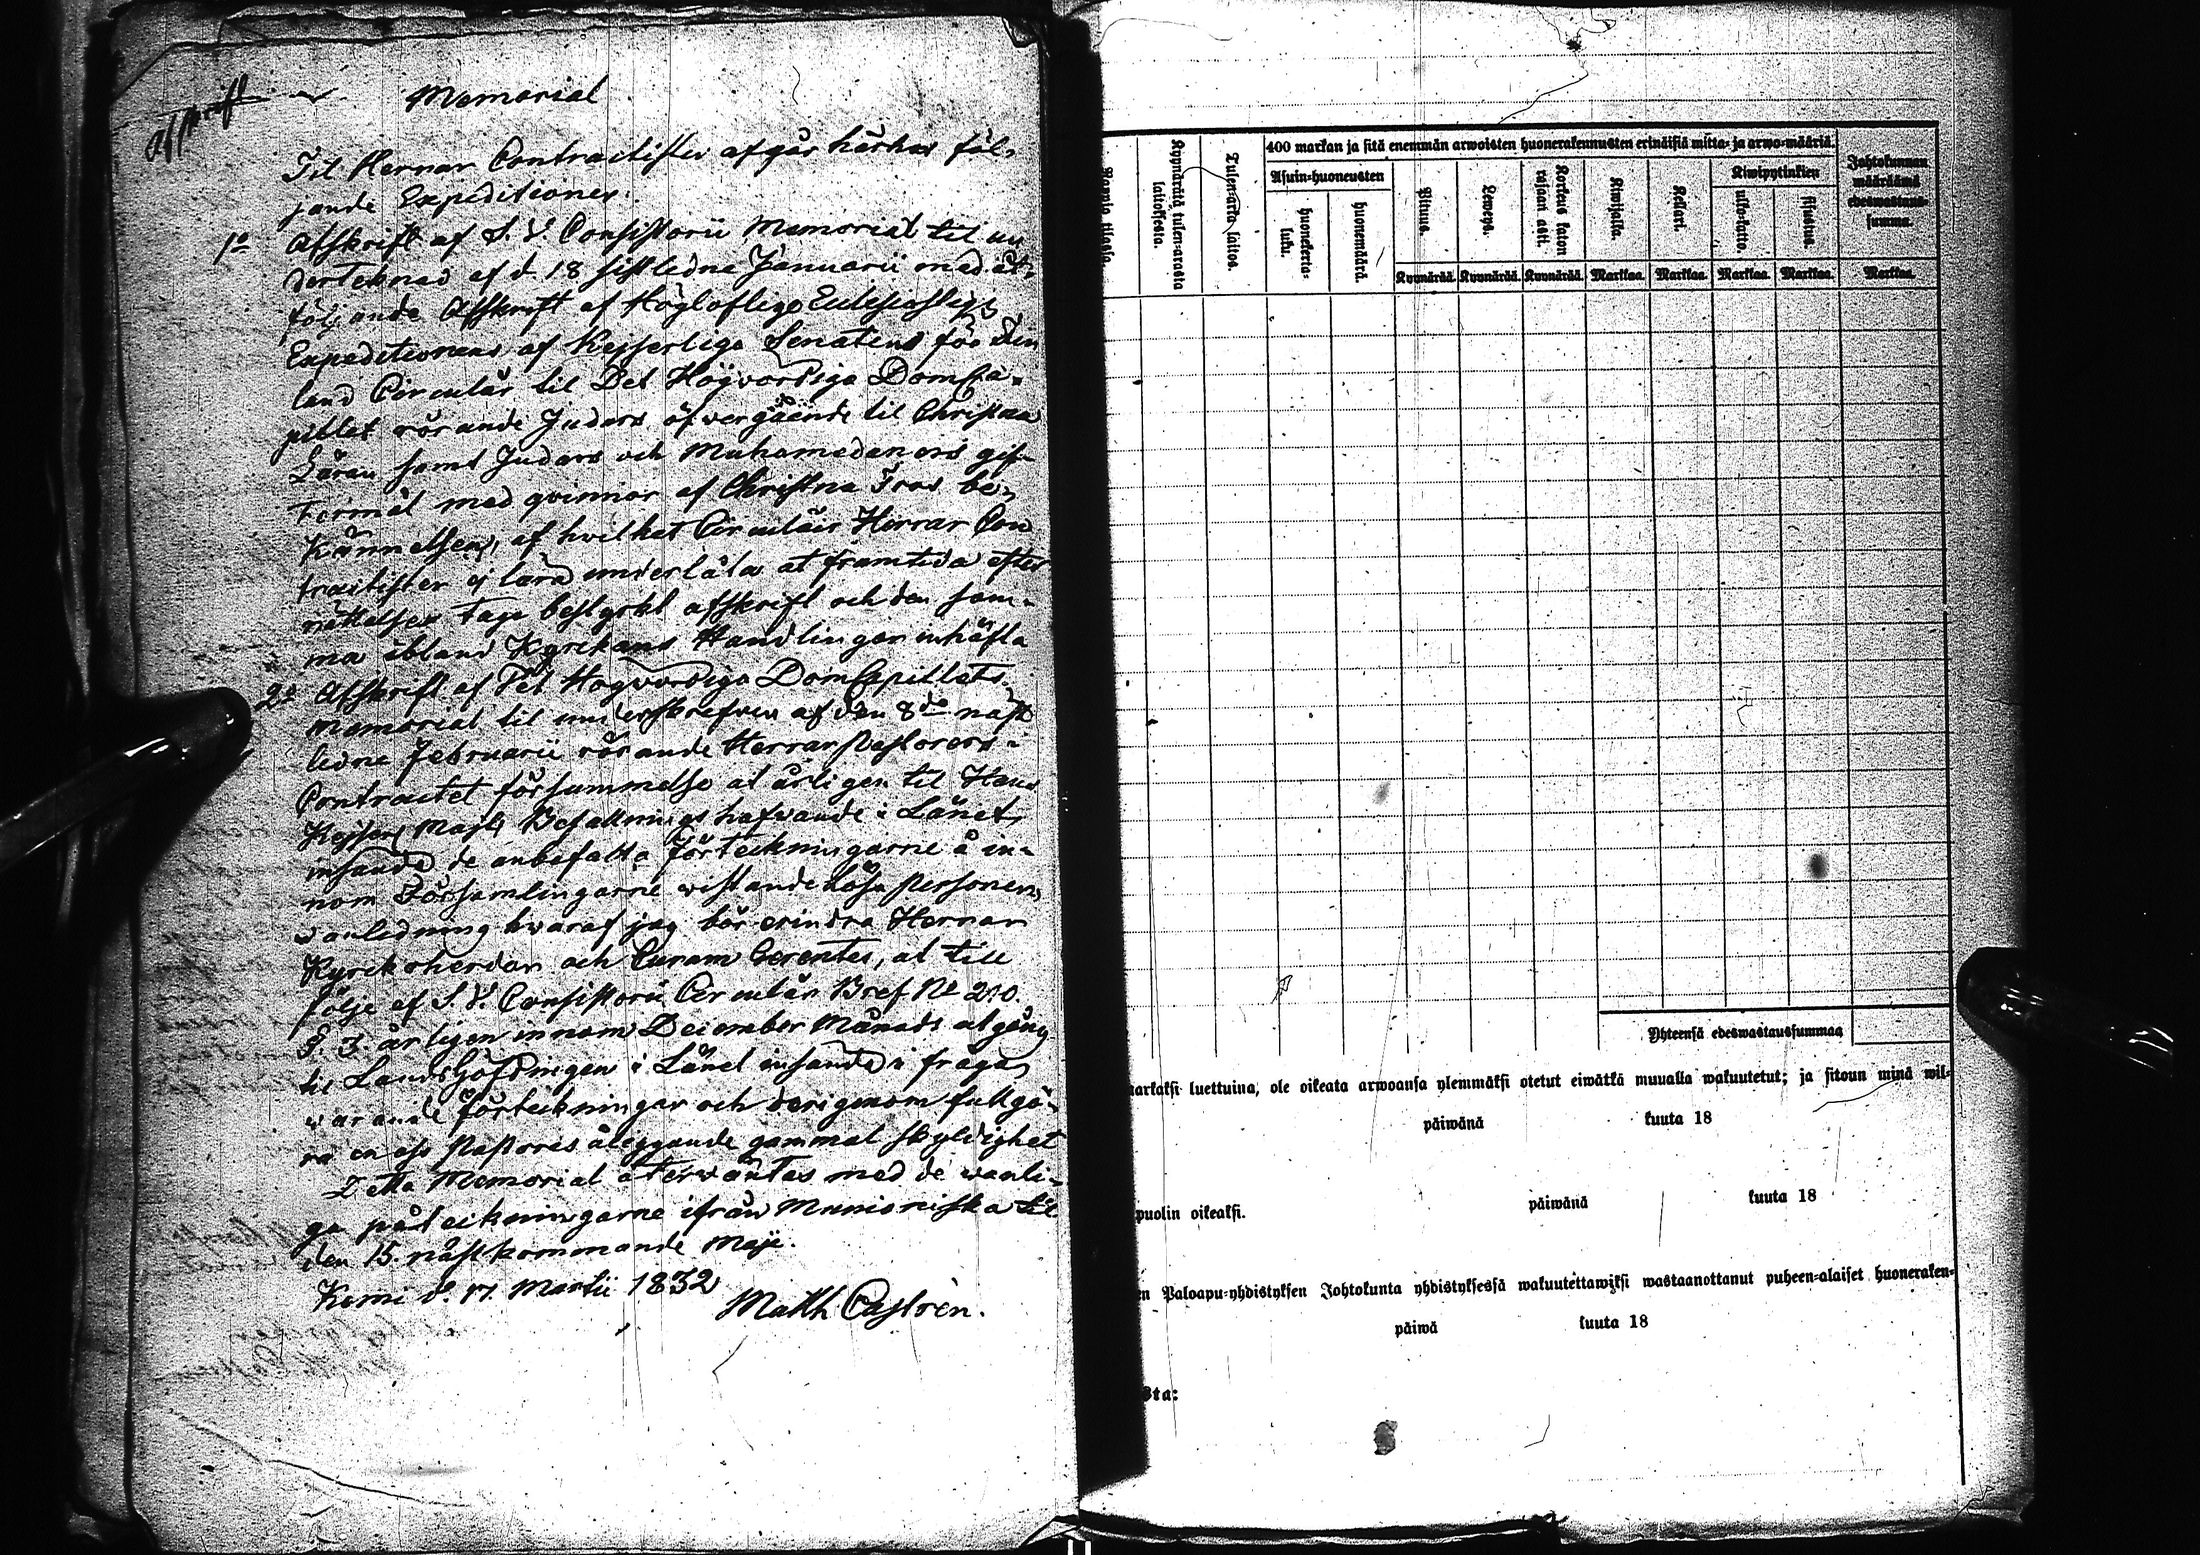 Afskrift
Memorial
Til Herrar Contractister afgår härhos föl-
jande Expeditioner.
1o Afskrift af S. V. Consistorii Memorial til un
dertecknad af d. 18 sistledne Januarii med åt-
följande Afskrift af Högloflige Ecclesiastigs
Expeditionens af Kejserliga Senatens för Fin
land Circulär til Det Högvördiga DomCa-
pitlet rörande Judars öfvergående til Christna
Läran samt Judars och Muhamedaners gif-
termål med qvinnor af Christna Tros be-
kännelsen, af hvilket Circulair Herrar Con
tractister ej lära underlåta at framtida efter
rättelse taga bestyrkt afskrift och den sam-
ma ibland Kyrkans Handlingar inhäfta
2o Afskrift af Det Högvördiga DomCapitlets
Memorial til underskrefven af den 8de näst
ledne Februarii rörande Herrar Pastorers i
Contractet försummelse at årligen til Hans
Kejserl Majts Befallningshafvande i Länet
insända de anbefalta Förteckningarne å in-
nom Församlingarne wistande lösa personer,
i anledning hwaraf jag bör erindra Herrar
Kyrkoherdar och Curam Gerentes, at till
följe af S. V. Consistorii Circulär Bref No 210.
§. 3. årligen innom December Månads utgång
til LandsHöfdingen i Länet insända i fråga
warande förteckningar och derigenom fullgö-
ra en oss Pastores åleggande gammal skyldighet
Detta Memorial återwäntas med de wanli-
ga påteckningarne ifrån Muonioniska til
den 15. nästkommande Maji.
Kemi d. 17. Martii 1832
Matth Castrèn.
400 markan ja sitä enemmän arwoisten huonerakennusten erinäisiä mitta- ja arwo-määriä.
Kyynärätä tulen-arasta laitoksesta.
Tulen-arka laitos.
Asuin-huoneusten
huonekerta-luku.
huonemäärä.
Pituus.
Leweys.
Korkeus katon rajaan asti.
Kiwijalka.
Kellari.
Kiwipytinkien
ulko-katto.
sisustus.
Johtokunnan
määräämä
edeswastaus-
summa.
Kyynärää. Kyynärää. Kyynärää. Markkaa. Markkaa. Markkaa. Markkaa. Markkaa.
Yhteensä edeswastaussummaa
markaksi luettuina, ole oikeata arwoansa ylemmäksi otetut eiwätkä muualla wakuutetut; ja sitoun minä wil-
päiwänä kuuta 18
puolin oikeaksi. päiwänä kuuta 18
en Paloapu-yhdistyksen Johtokunta yhdistyksessä wakuutettawiksi wastaanottanut puheen-alaiset huoneraken-
päiwä kuuta 18
sta: